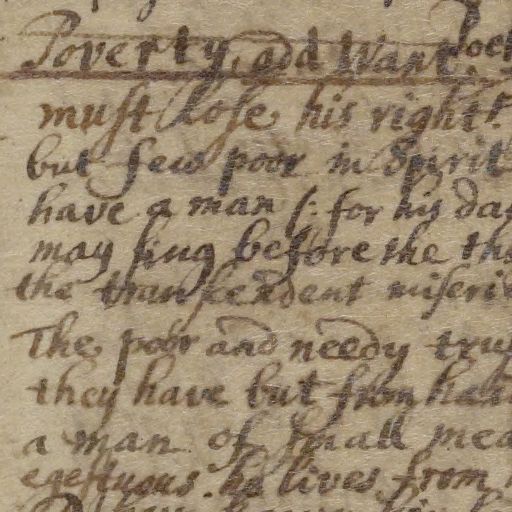 Poverty, add Want.
must lose his right.
but few poor in Spirit
have a man (: for his
may sing before the
the transcendent
The poor and needy
they have but from
a man of small
egestuous. he lives from